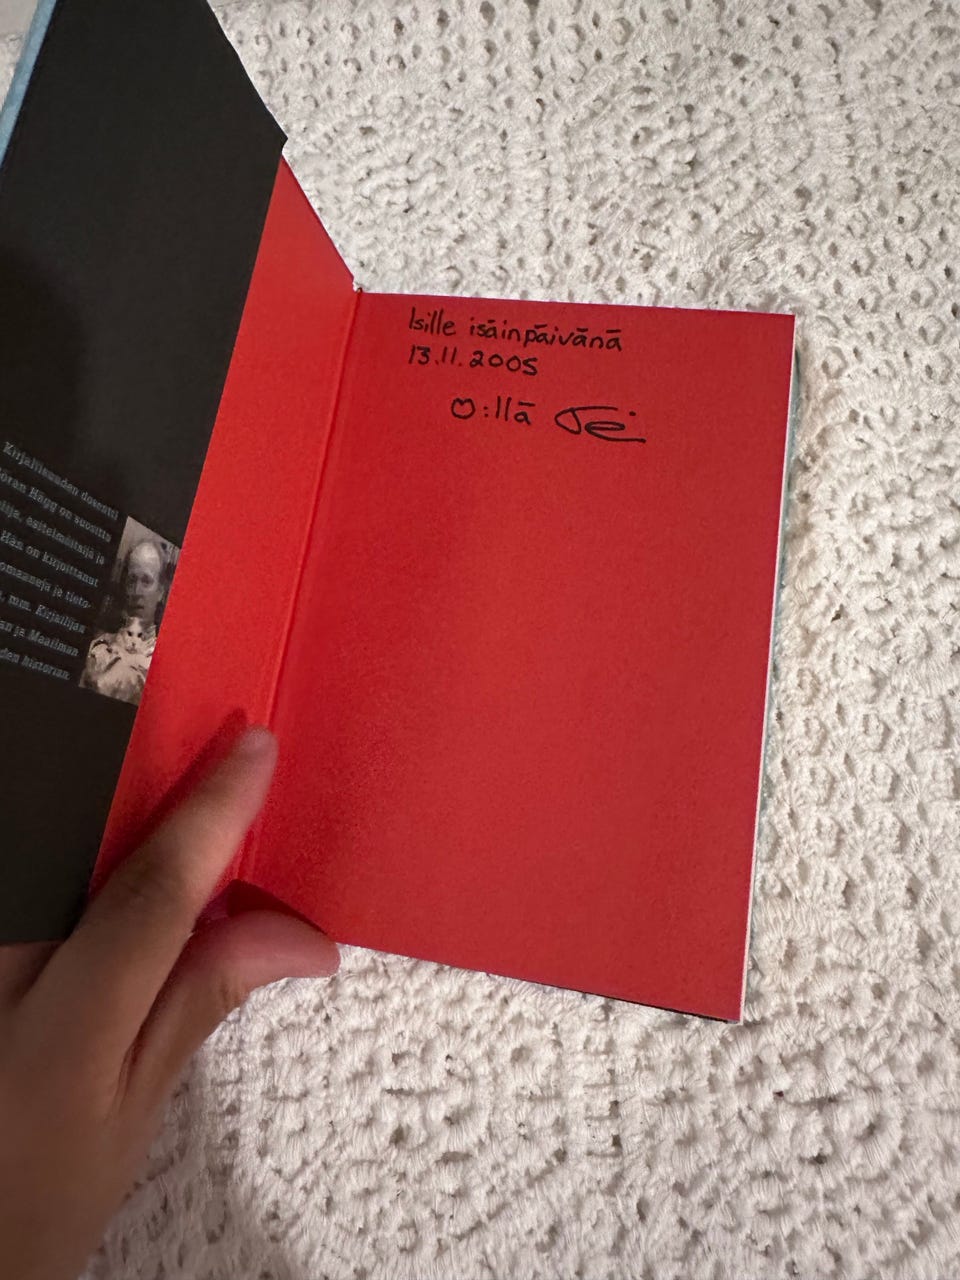 Kirjallisuuden dosentti
Göran Hägg on suosittu
esitelmöitsijä ja
Hän on kirjoittanut
romaaneja ja tieto-
mm. Kirjailijan
ja Maailman
historian
Isille isäinpäivänä
13.11.2005
♡:llä